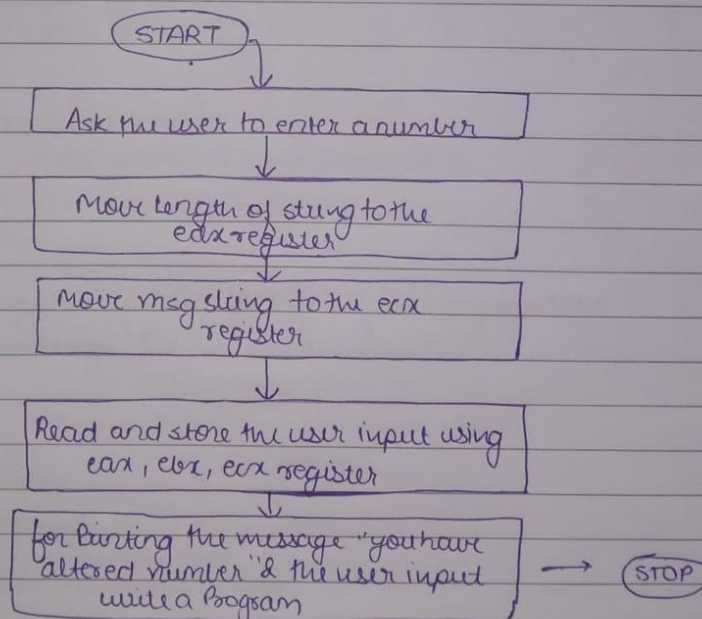 START
Ask the user to enter a number
Move Length of string to the
edx register
Move msg string to the ecx
register
Read and store the user input using
eax, ebx, ecx register
for Printing the message "you have
altered number" & the user input
write a Program
STOP